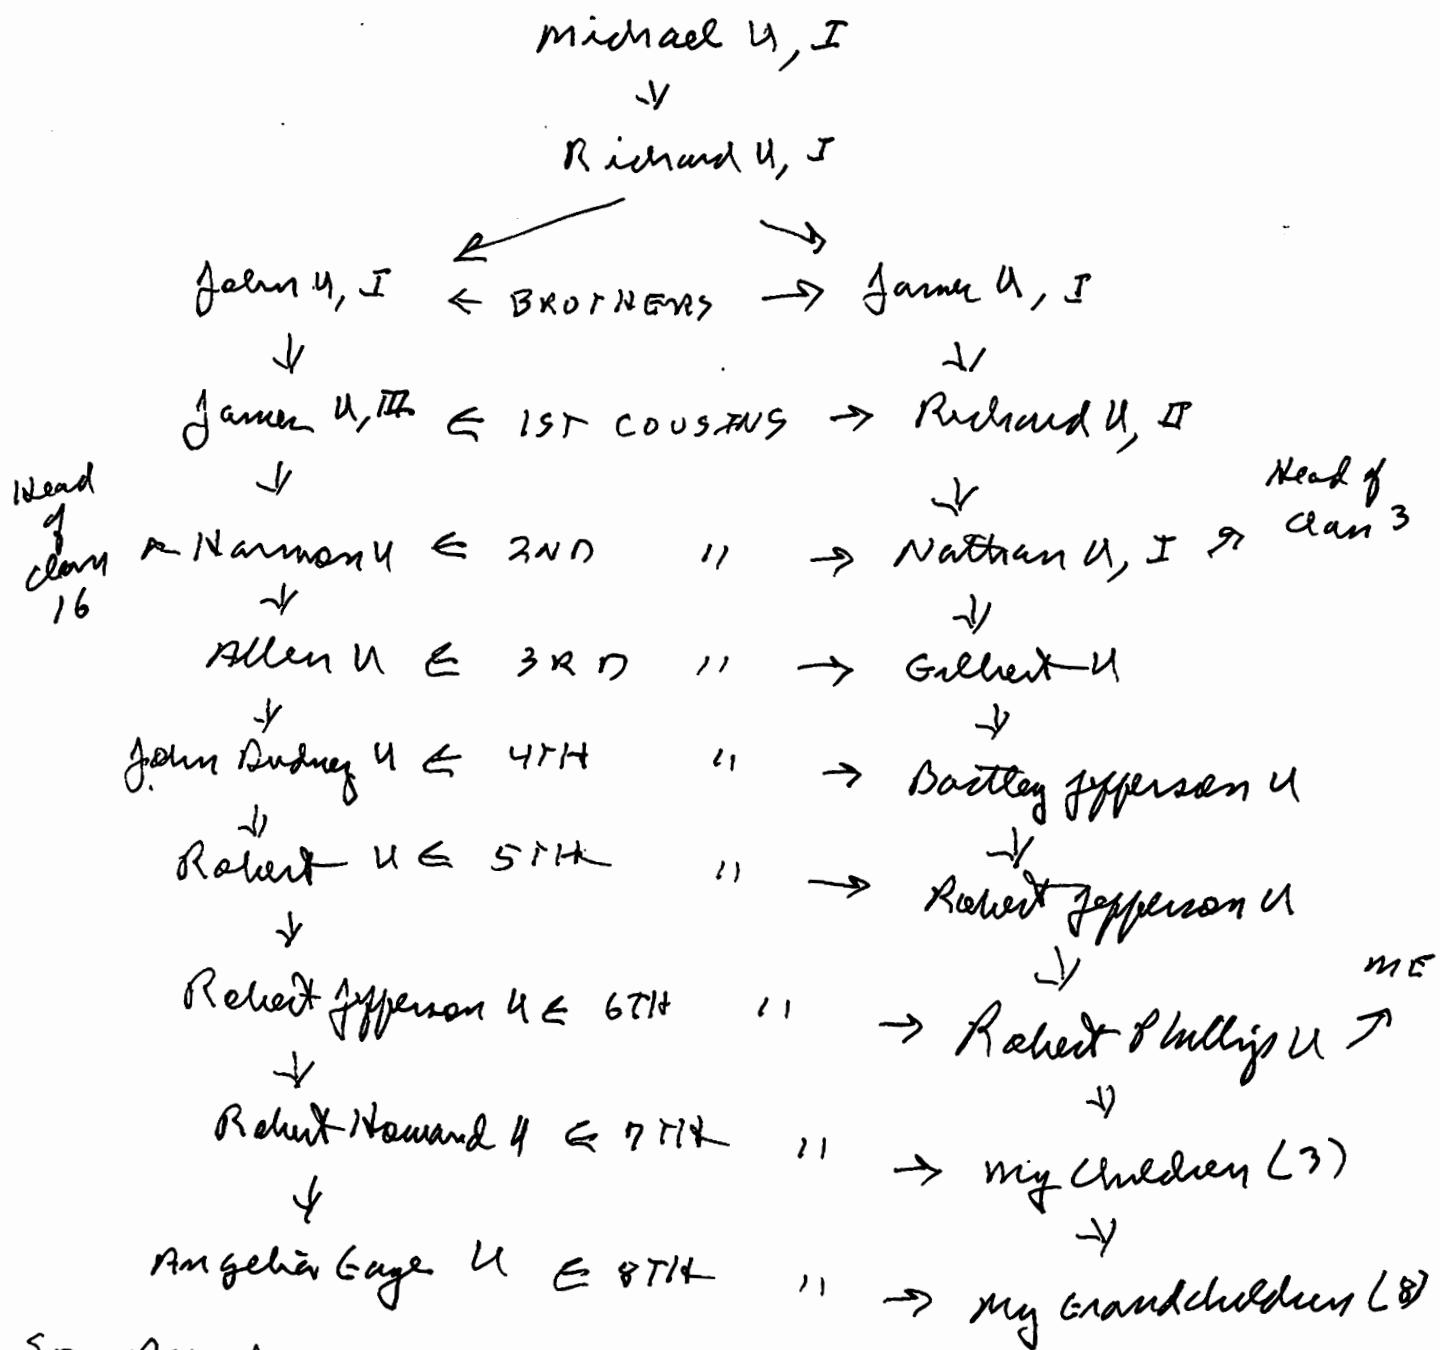 Michael U, I
Richard U, I
John U, I ← BROTHERS → James U, I
James U, III ← 1ST COUSINS → Richard U, II
Head of Clan 16 Harmon U ← 2ND " → Nathan U, I Head of Clan 3
Allen U ← 3RD " → Gilbert U
John U ← 4TH " → Bartley Jefferson U
Robert U ← 5TH " → Robert Jefferson U
ME
Robert Jefferson U ← 6TH " → Robert Phillips U
Robert Howard U ← 7TH " → My Children (3)
Gaye U ← 8TH " → My Grandchildren (8)